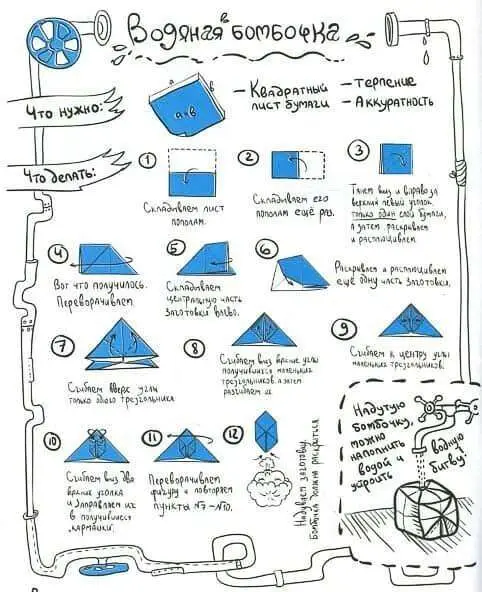 Водяная бомбочка
Что нужно:
а=в
в
– Квадратный
лист бумаги
– терпение
– Аккуратность
Что делать:
1
Складываем лист
пополам.
2
Складываем его
пополам ещё раз.
3
Тянем вниз и вправо за
верхний левый уголок
только один слой бумаги,
а затем раскрываем
и расплющиваем
4
Вот что получилось.
Переворачиваем.
5
Складываем
центральную часть
заготовки влево.
6
Раскрываем и расплющиваем
ещё одну часть заготовки.
7
Сгибаем вверх углы
только одного треугольника
8
Сгибаем вниз верхние углы
получившихся маленьких
треугольников, а затем
разгибаем их
9
Сгибаем к центру углы
маленьких треугольников.
10
Сгибаем вниз два
верхние уголка
и заправляем их
в получившиеся
"кармашки".
11
Переворачиваем
фигуру и повторяем
пункты №7–№10.
12
Надуваем заготовку.
Бомбочка должна раскрыться
Надутую
бомбочку,
можно
наполнить
водой и
устроить
водную
битву!